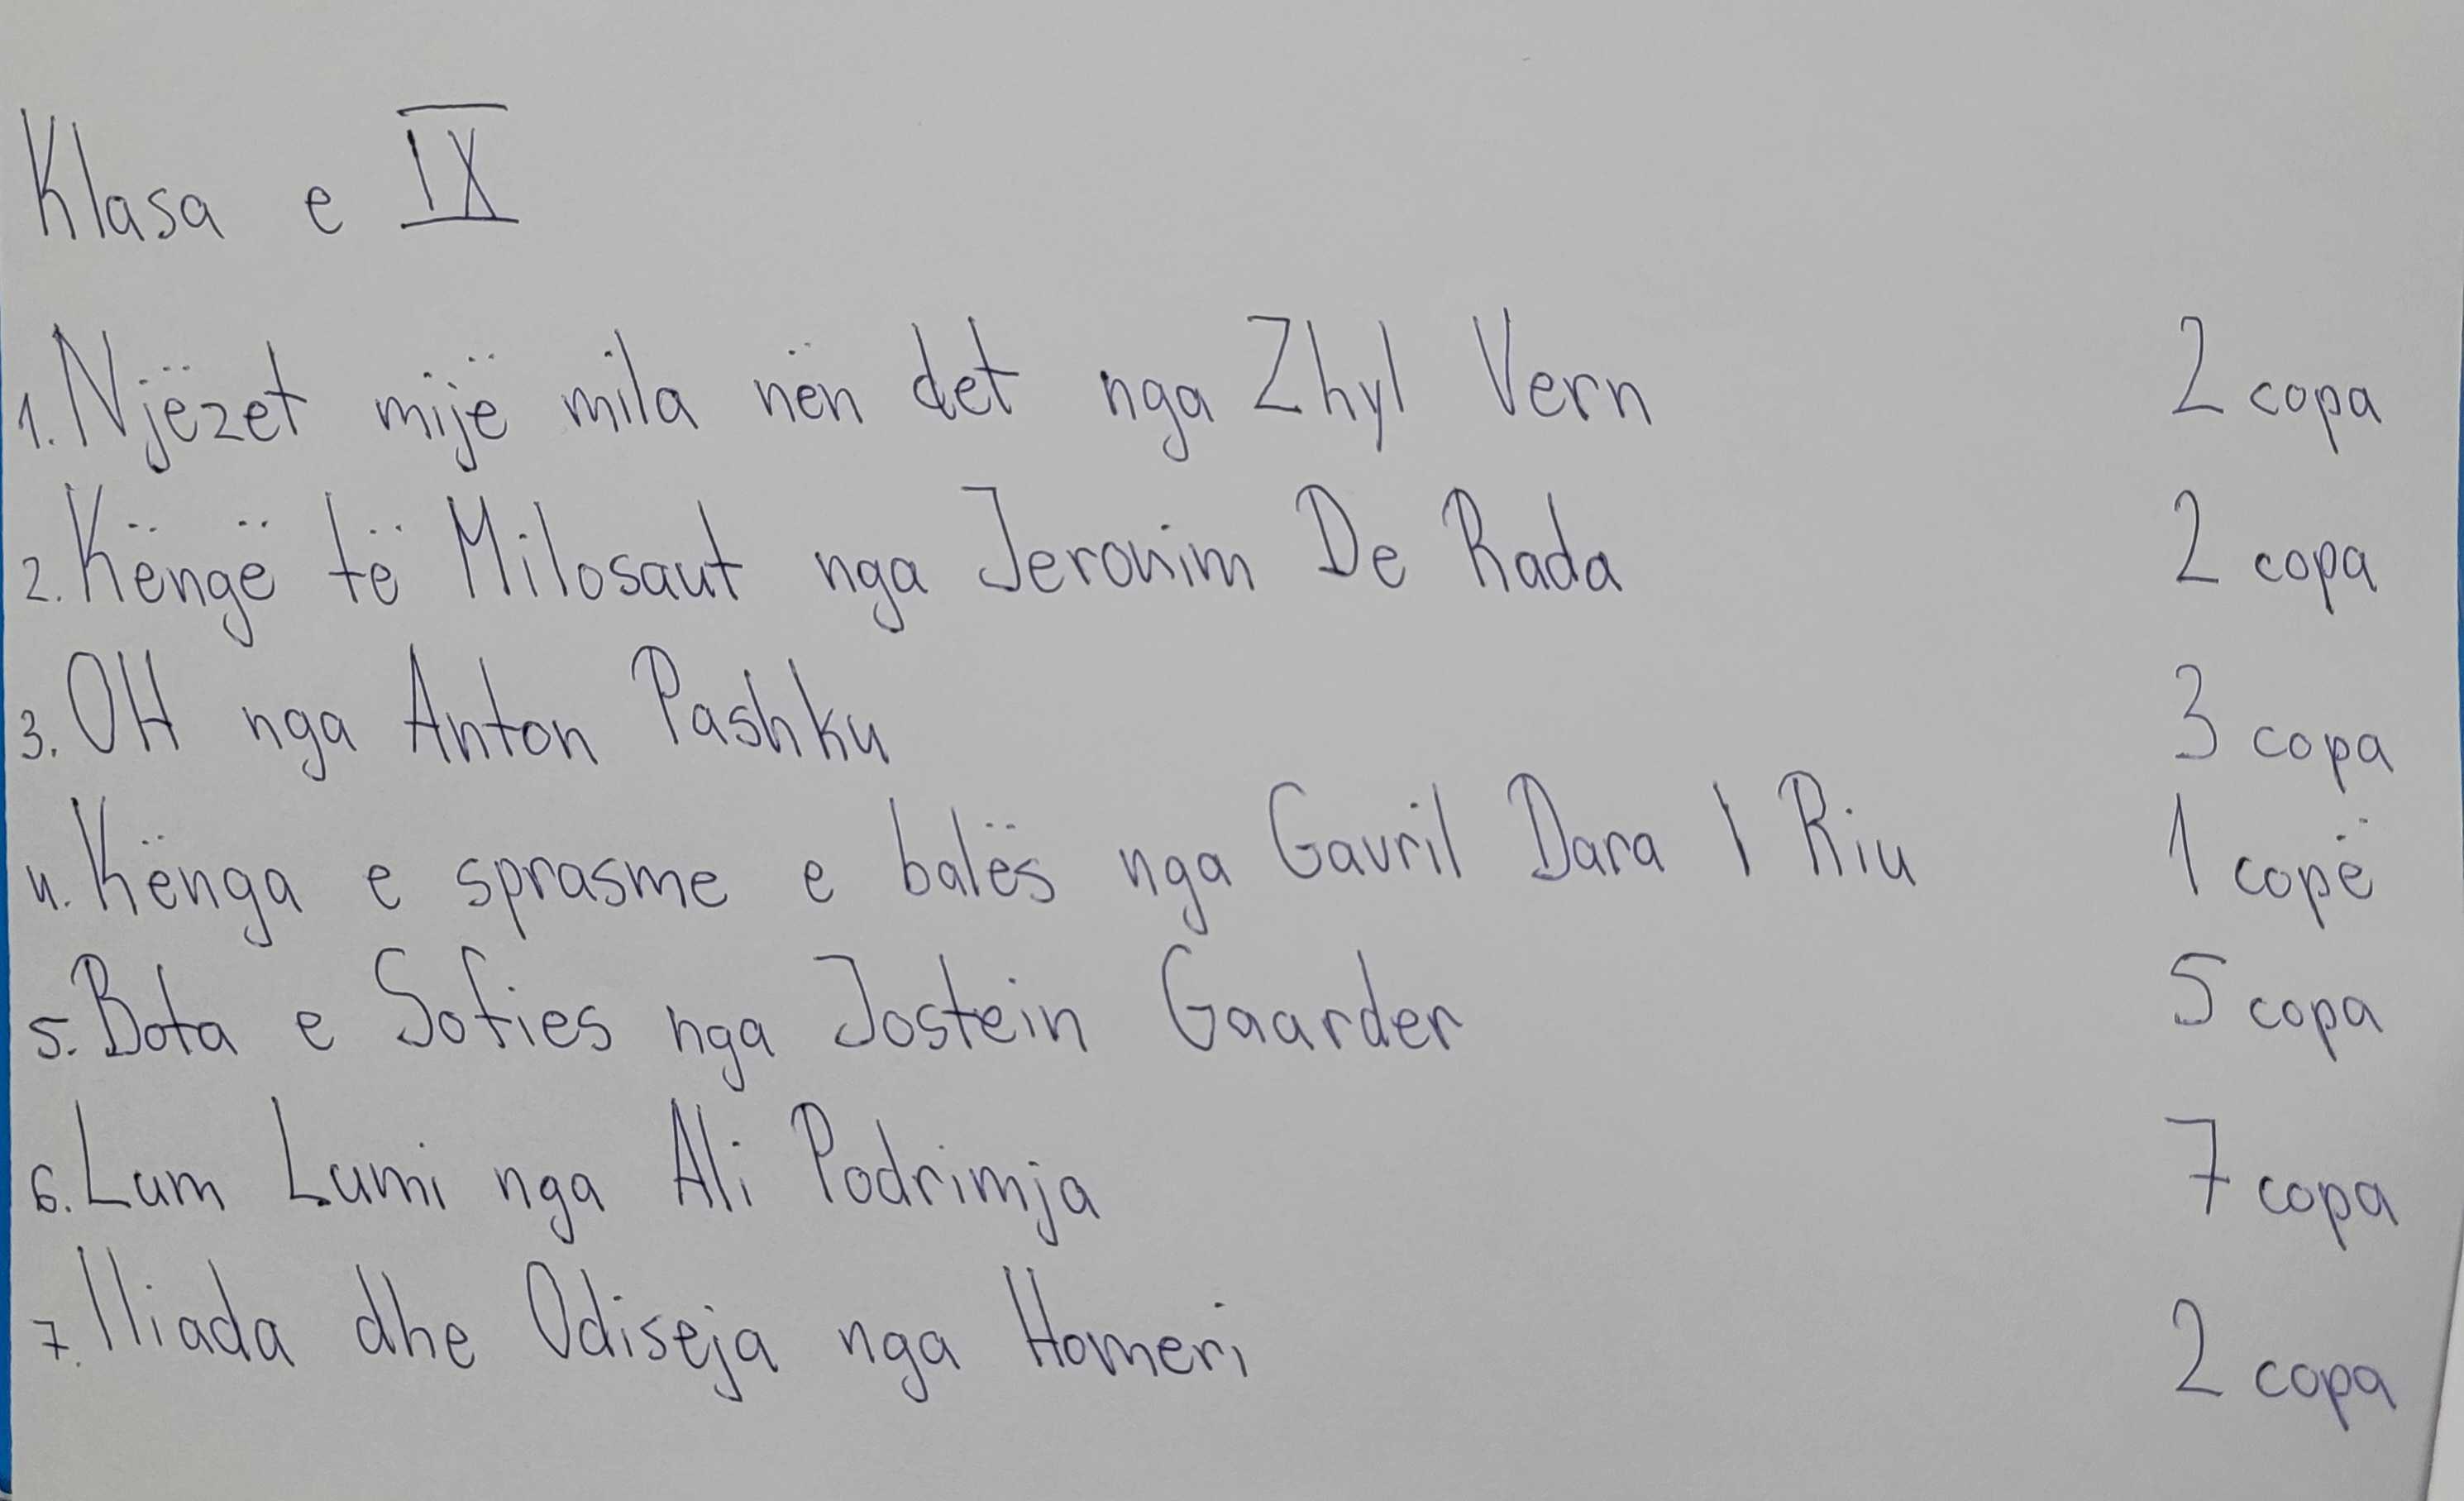 Klasa e IX
1. Njëzet mijë mila nën det nga Zhyl Vern 2 copa
2. Këngë të Milosaut nga Jeronim De Rada 2 copa
3. OH nga Anton Pashku 3 copa
4. Kënga e sprasme e balës nga Gavril Dara I Riu 1 copë
5. Bota e Sofies nga Jostein Gaarder 5 copa
6. Lum Lumi nga Ali Podrimja 7 copa
7. Iliada dhe Odiseja nga Homeri 2 copa